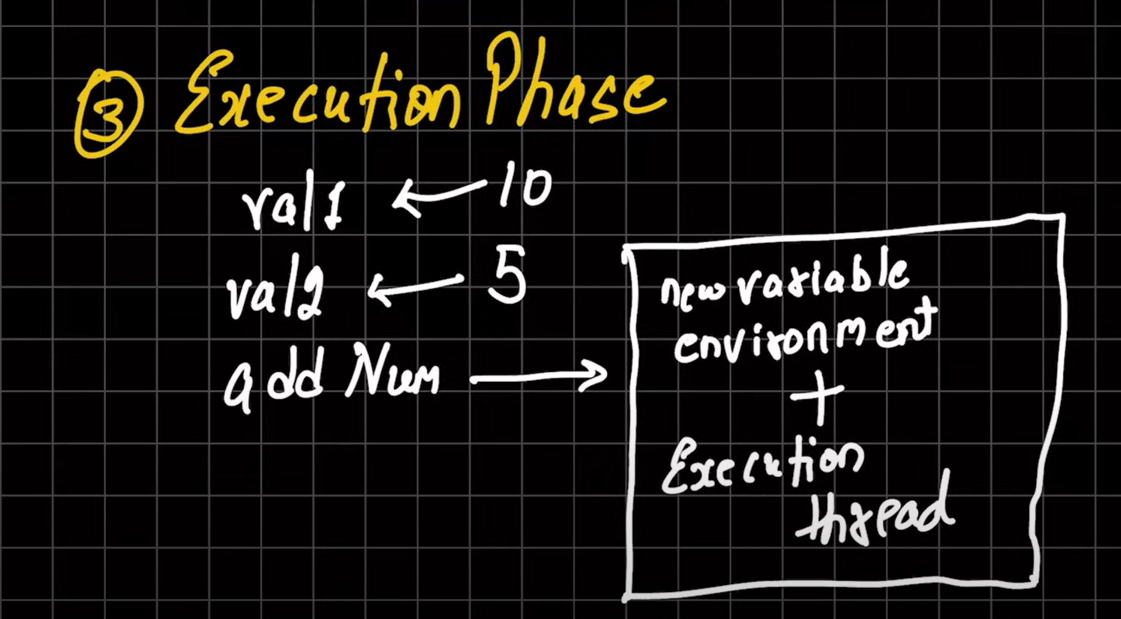 ③ Execution Phase
val1 ← 10
val2 ← 5
addNum →
new variable
environment
+
Execution
thread